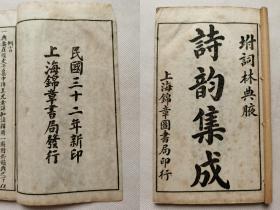 民國三十二年新印
上海錦章書局發行
坿詞林典腋
詩韵集成
上海錦章圖書局印行